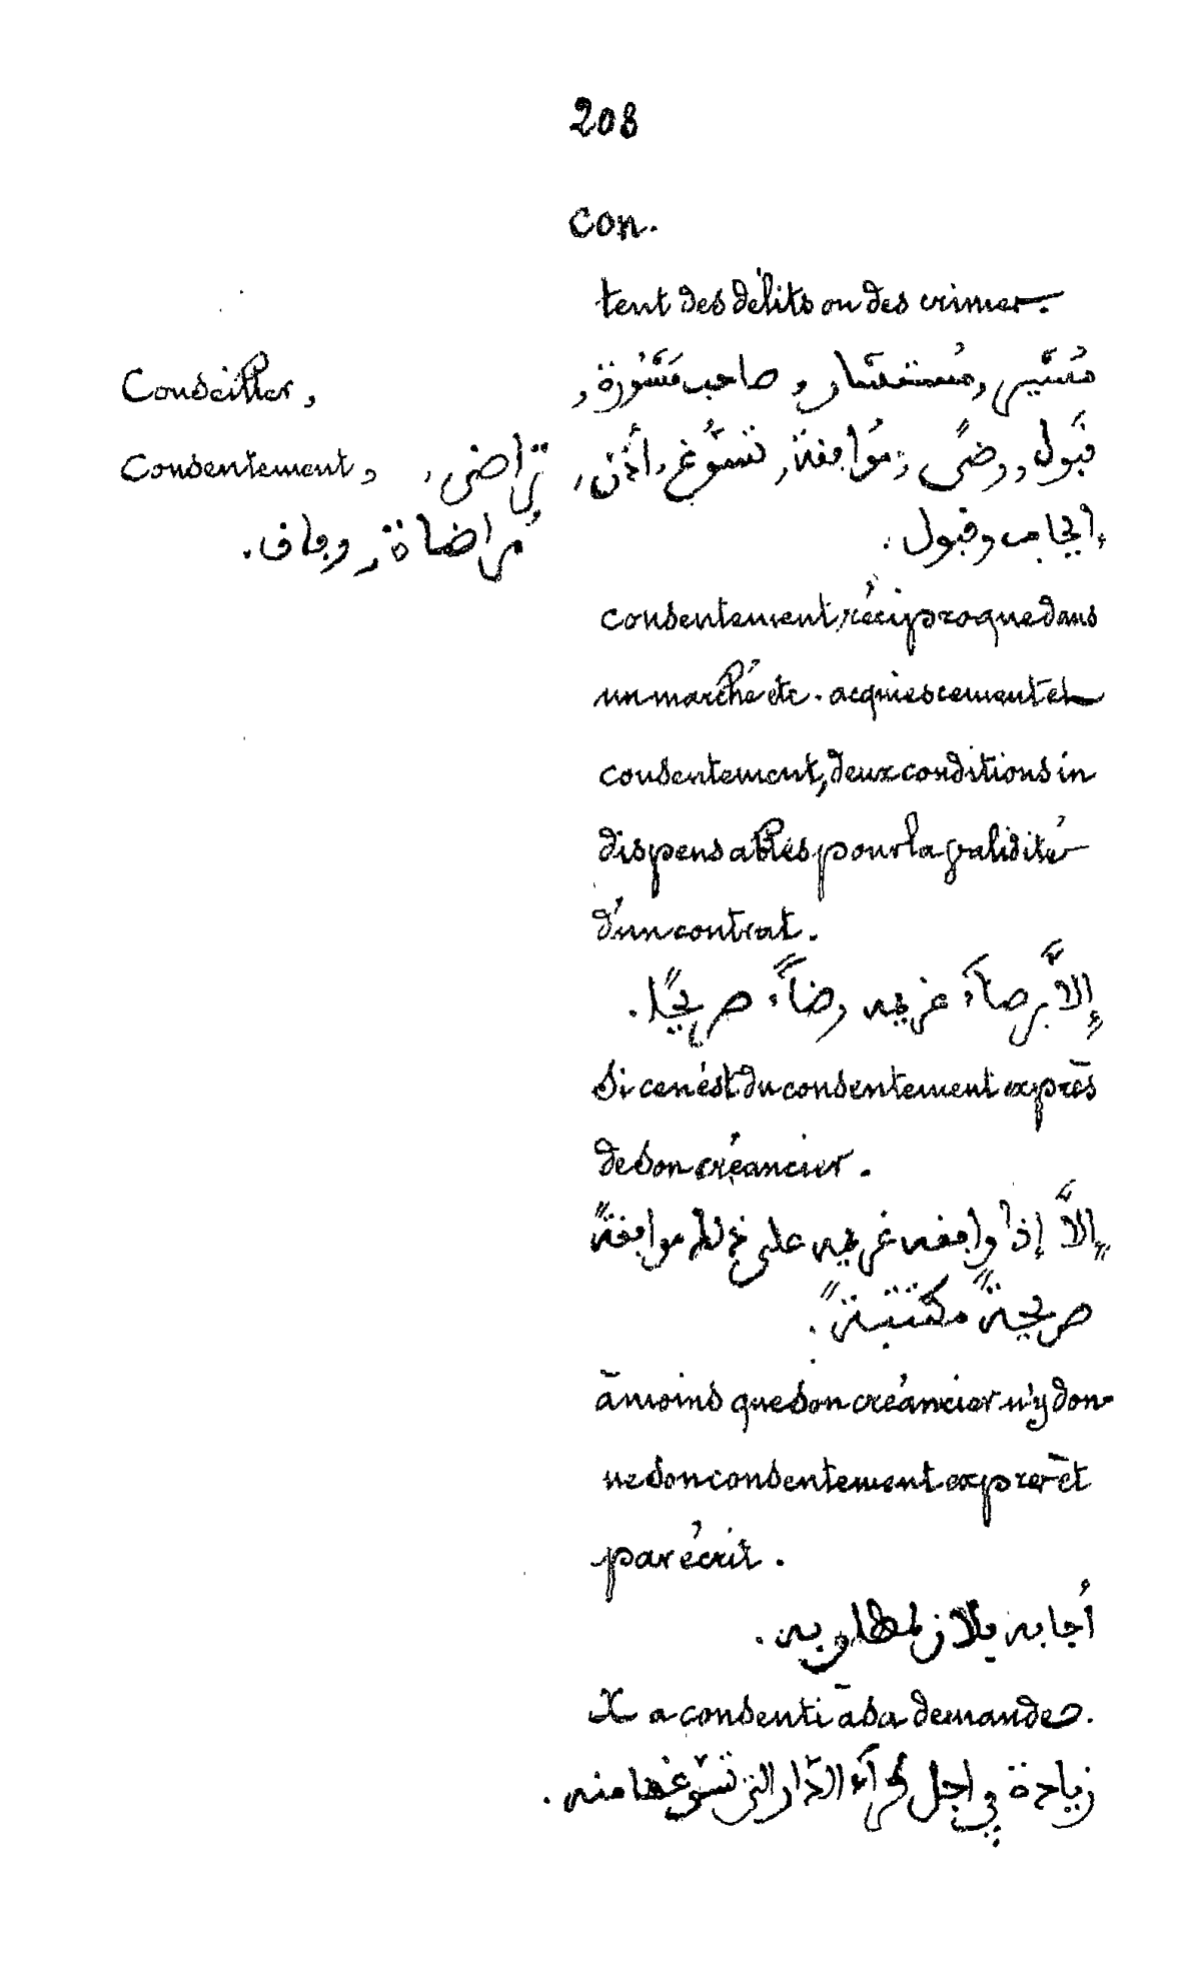 208
Con.
tent des délits ou des crimes.
Conseiller, مُشَيِر, مُستَشَار, صاحب مَشُورة,
Consentement, تراضى, قَبُول, رِضًى, مُوَافقة, تَسَوُّغ, أذن,
مُراضاة, وفاق. إيجاب وقبول.
consentement réciproque dans
un marché etc. acquiescement et
consentement, deux conditions in
dispensables pour la validité
d'un contrat.
إلاَّ برضآء غريمه رضآءً صريحًا.
Si ce n'est du consentement exprès
de son créancier.
إلاَّ إذا وافقه غريمه على ذلك موافقةً
صريحةً مكتتبةً.
à moins que son créancier n'y don-
ne son consentement exprès et
par écrit.
أجابه مطلوبه.
Il a consenti à sa demande.
زيادة في اجل كرآء الدّار التي تسوّغها منه.